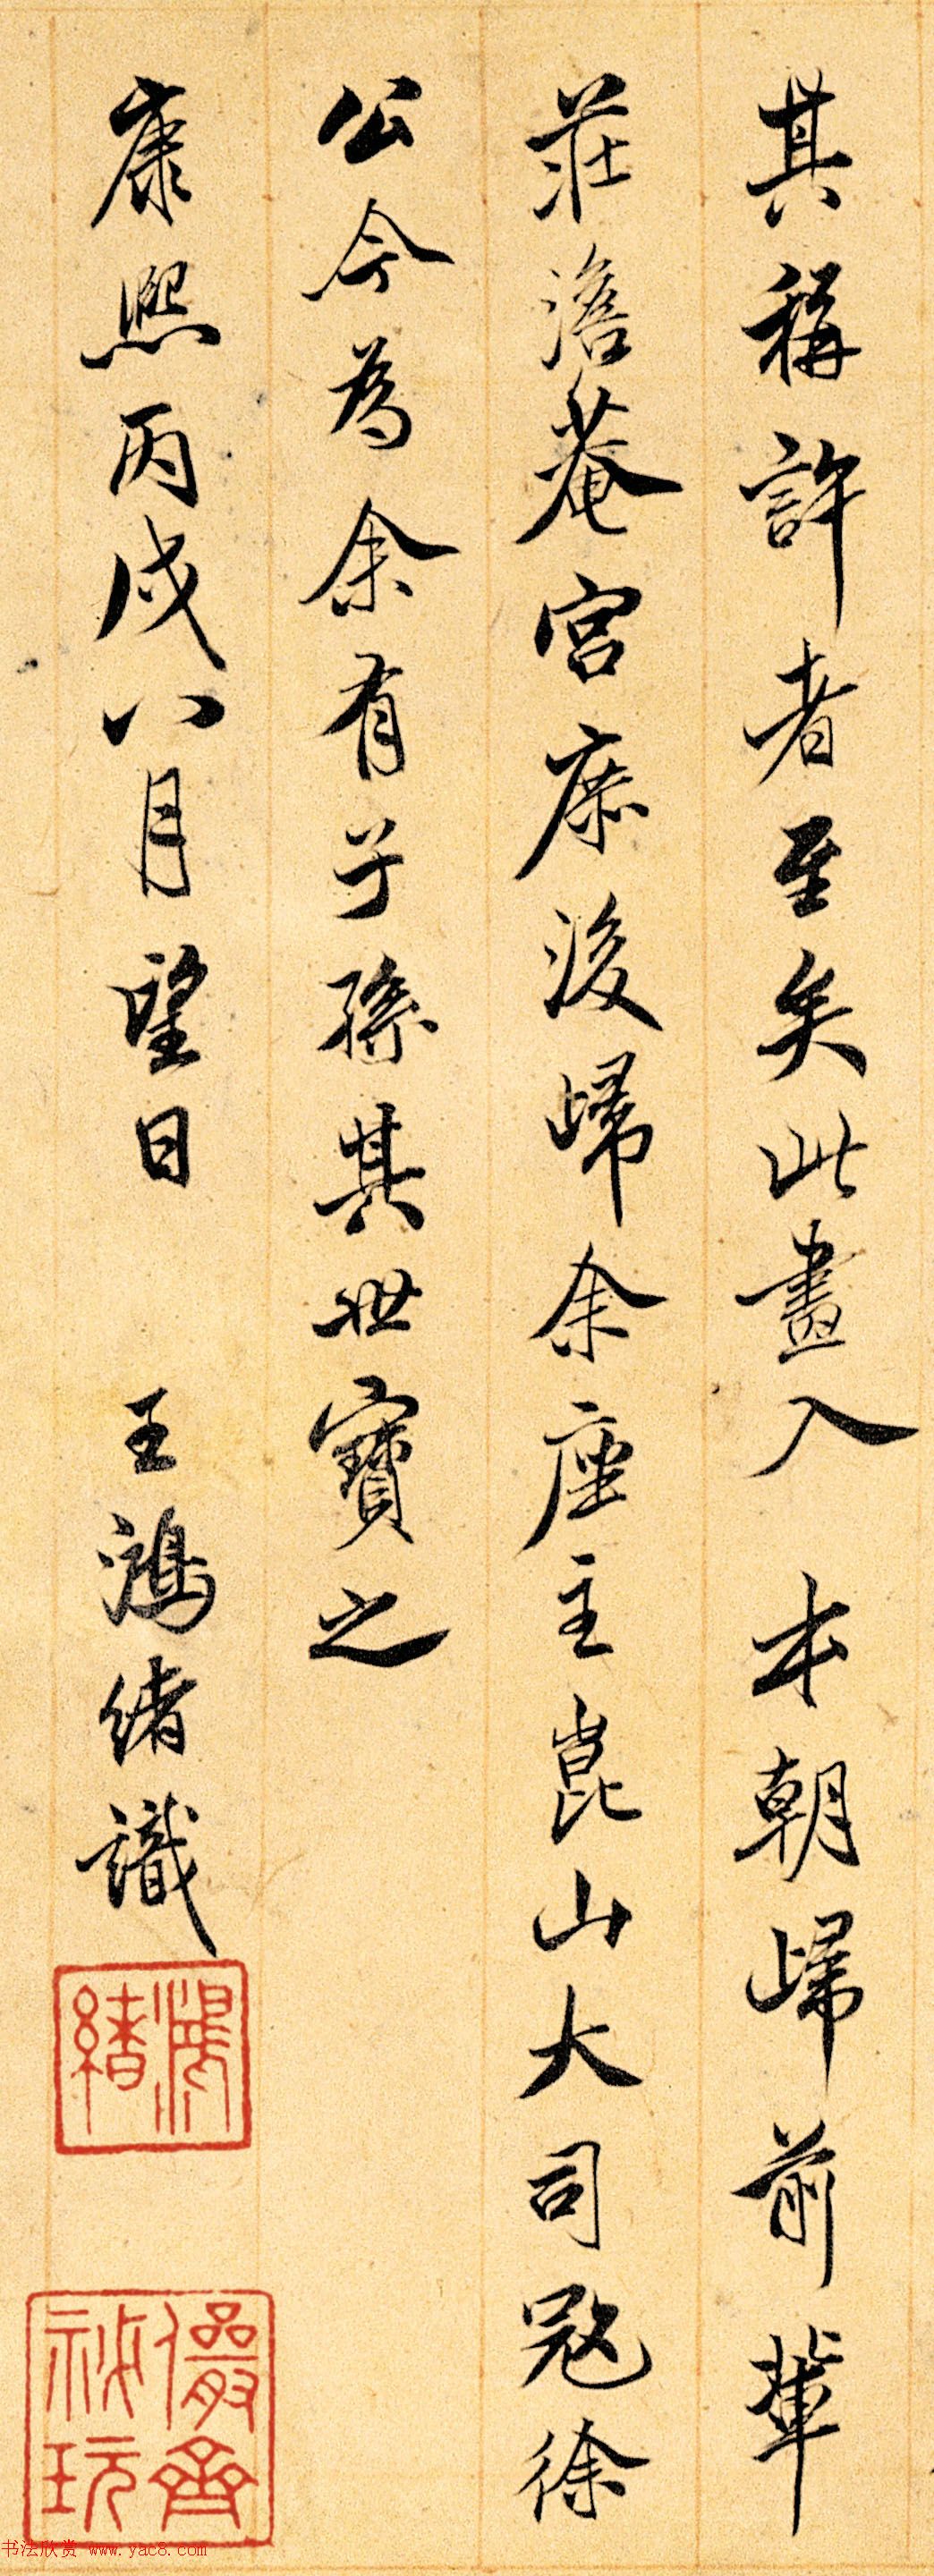 其稱許者至矣此畫入 本朝歸前輩
莊澹菴宮庶後歸余座主崑山大司寇徐
公今為余有子孫其世寶之
康熙丙戌八月望日 王鴻緒識
鴻緒
儼齋秘玩
书法欣赏 www.yac8.com